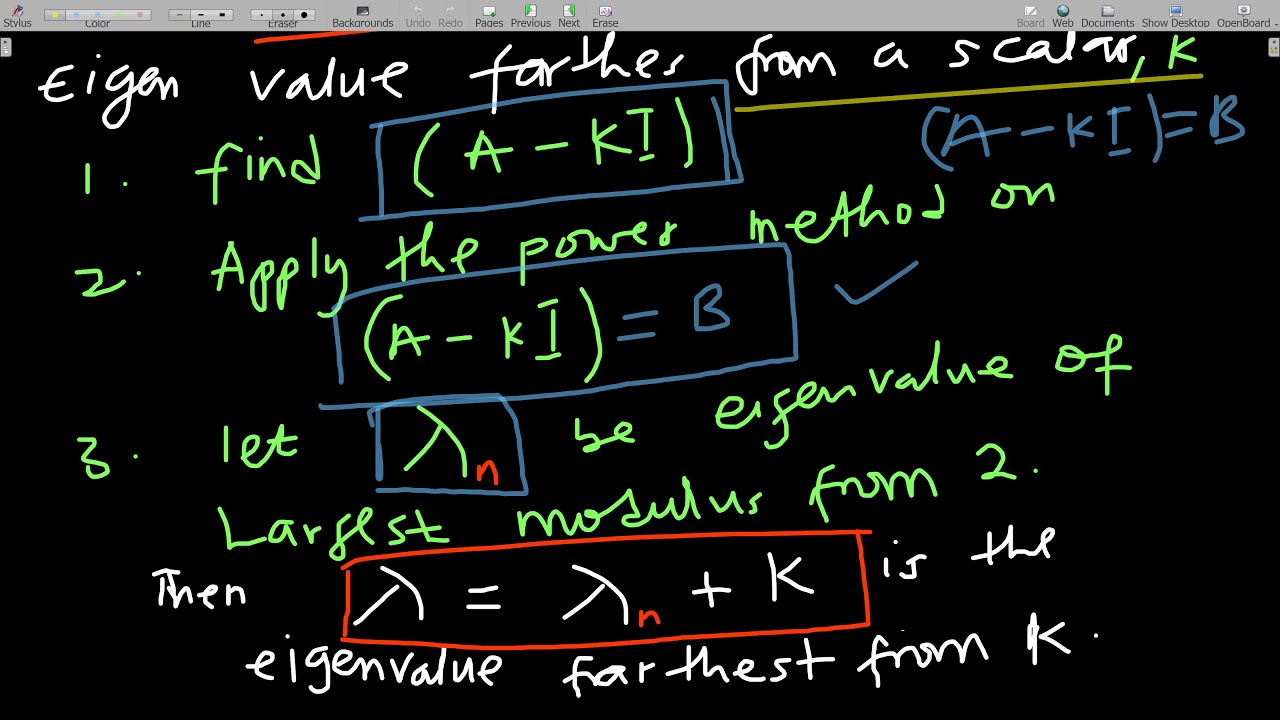 Stylus Color Line Eraser Backgrounds Undo Redo Pages Previous Next Erase Board Web Documents Show Desktop OpenBoard
Eigen value farthes from a scalar, K
1. find (A - KI) (A - KI) = B
2. Apply the power method on
(A - KI) = B ✓
3. let λn be eigenvalue of
Largest modulus from 2.
Then λ = λn + K is the
eigenvalue farthest from K.